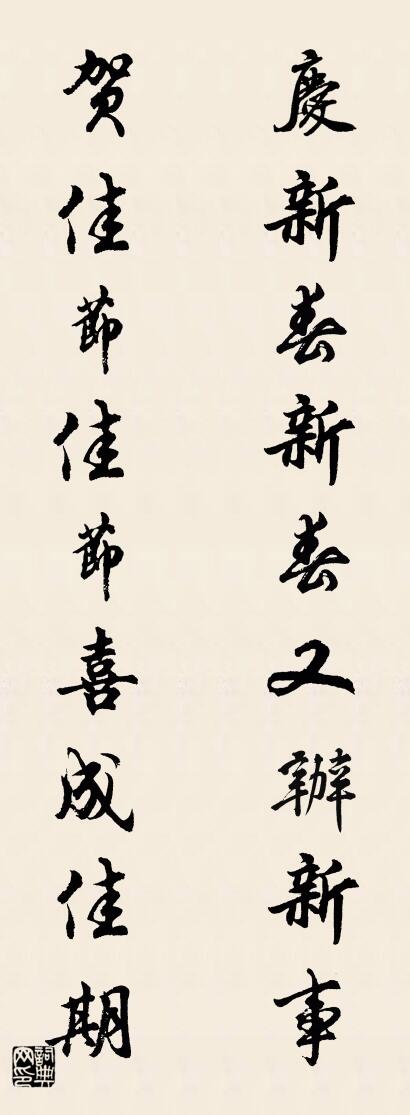 慶新春新春又辦新事
贺佳節佳節喜成佳期
詞典网印